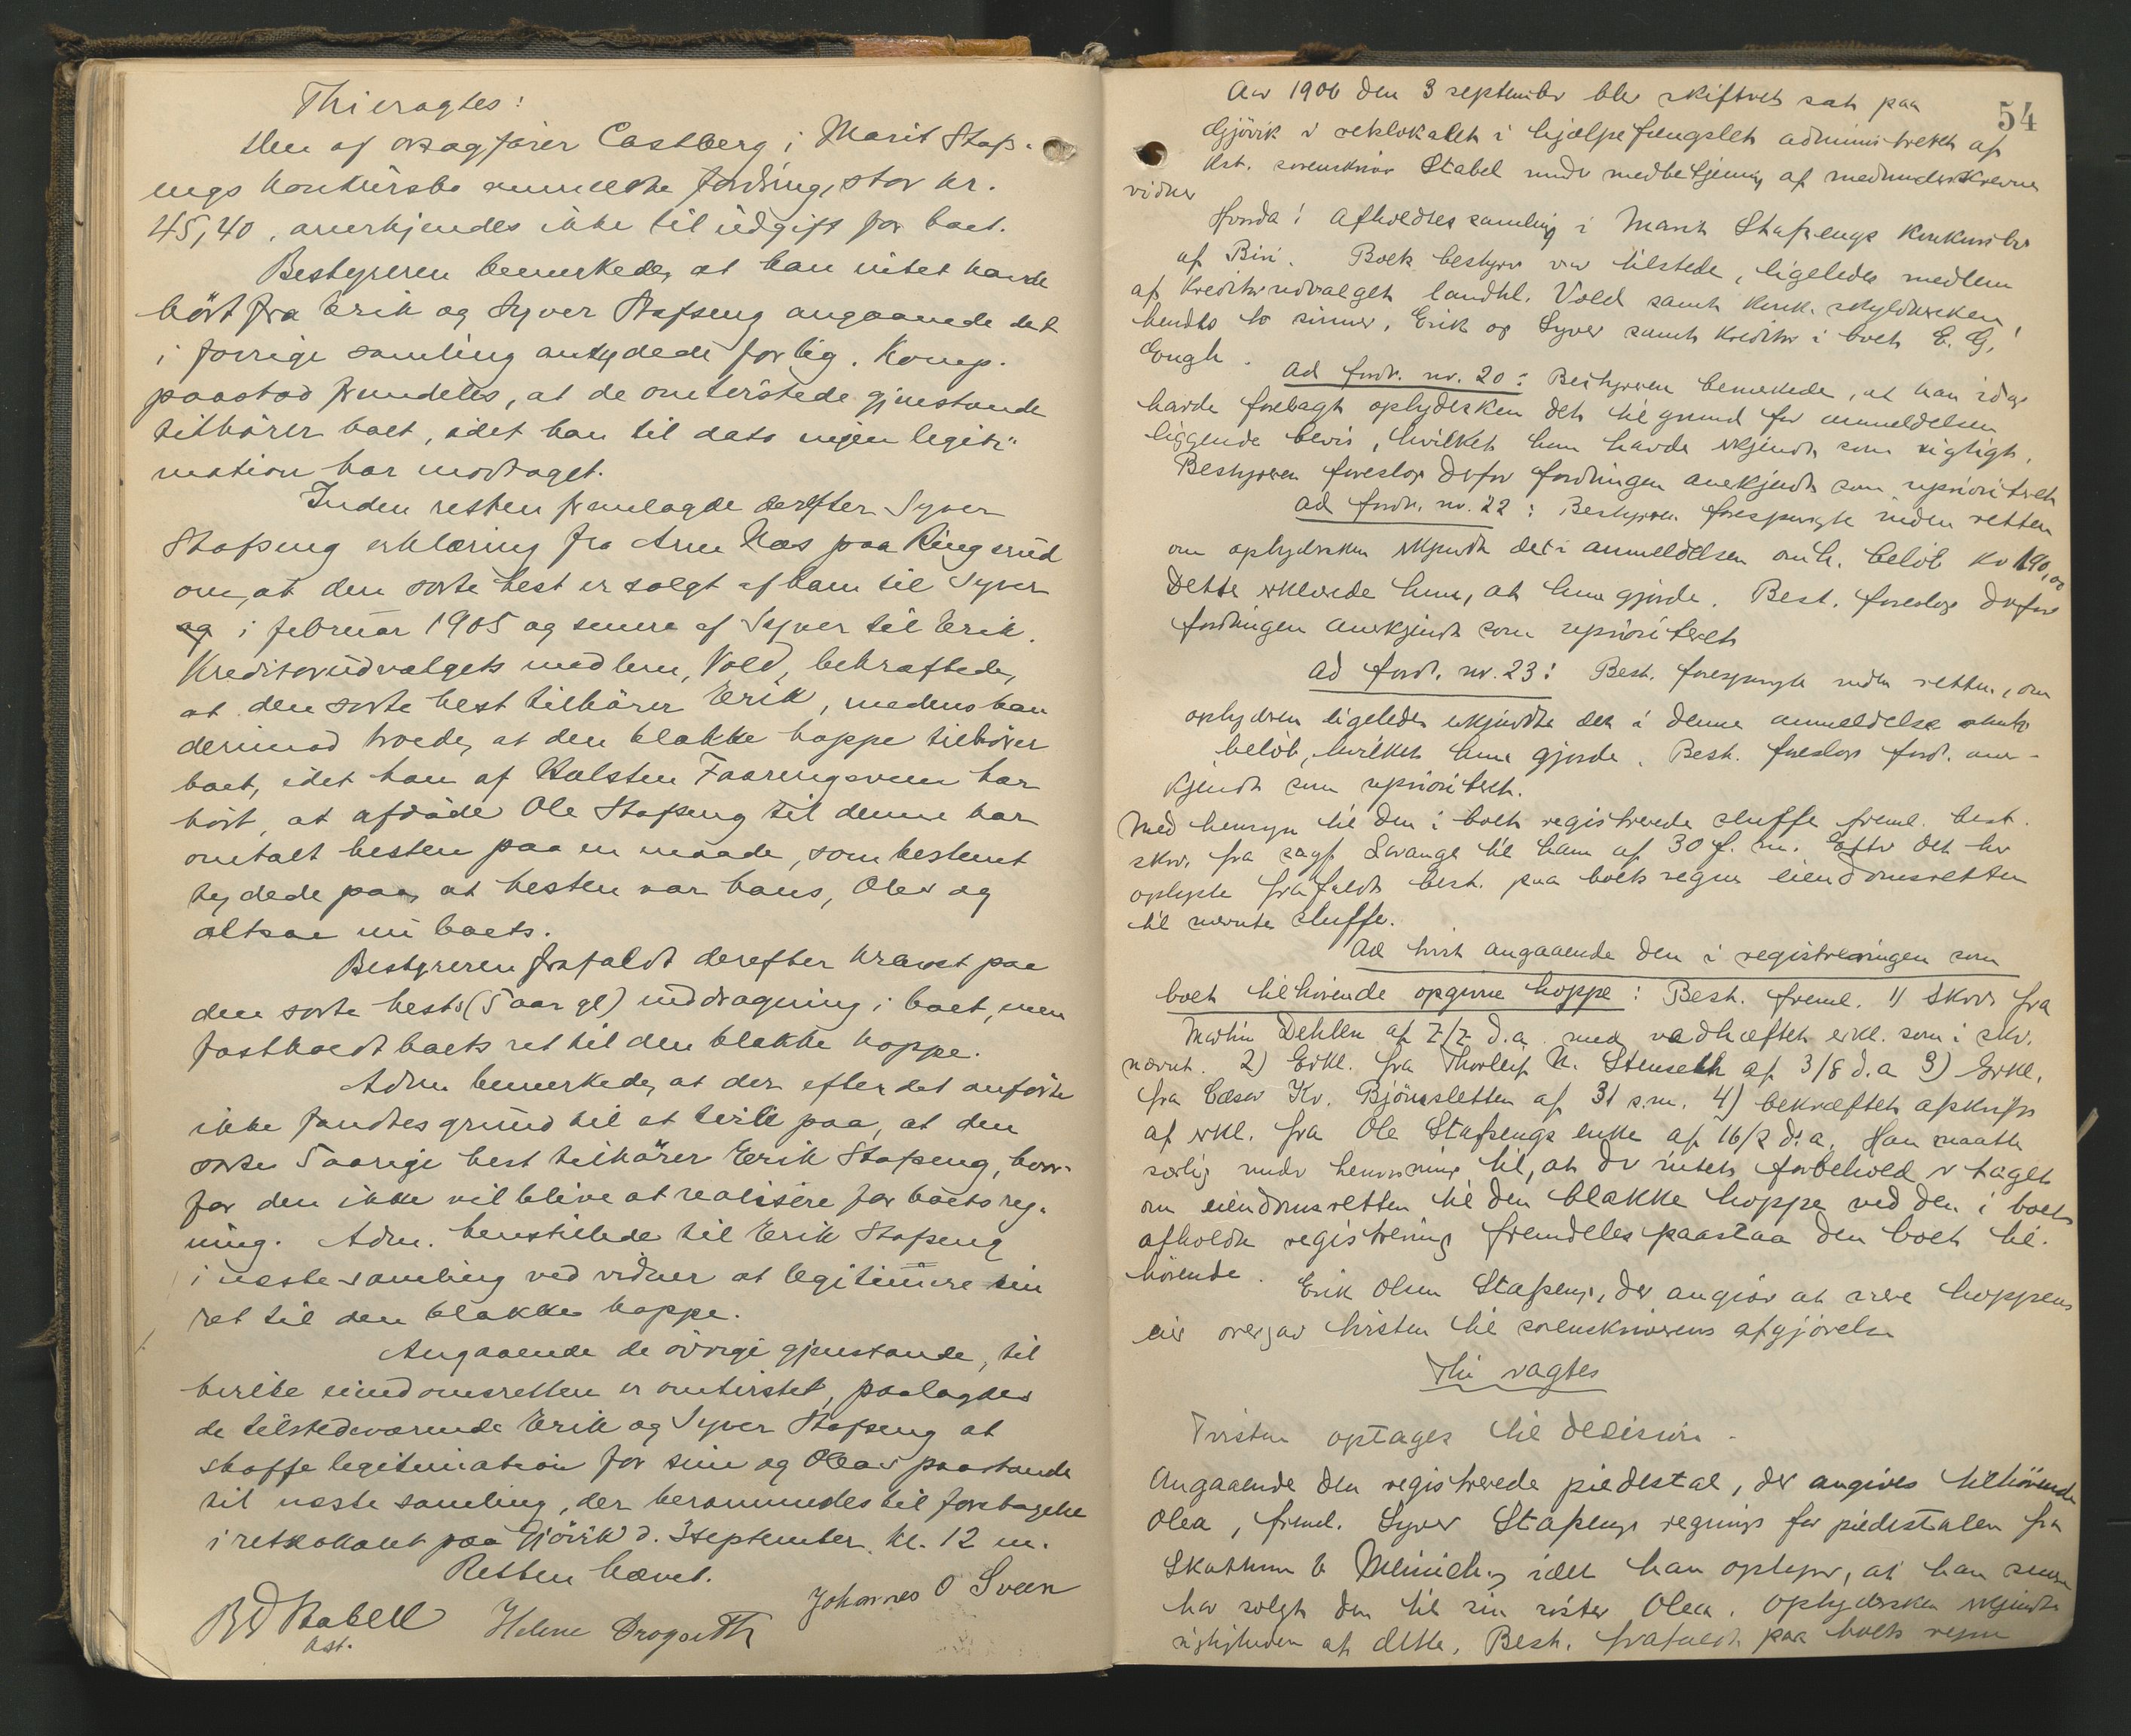 Thi eragtes:
Den af orsagfører Castberg i Marit Stafs-
engs konkursbo anmeldte fordring, stor kr.
45,40, anerkjendes ikke til udgift for boet.
Bestyreren bemerkede, at han intet havde
hört fra Erik og Syver Stafseng angaaende det
i forrige samling antydede forlig. Komp.
paastod fremdeles, at de omtvistede gjenstande
tilhörer boet, idet han til dato ingen legiti-
mation har modtaget.
Inden retten fremlagde derefter Syver
Stafseng erklæring fra Arne Næs paa Ringsrud
om, at den sorte hest er solgt af ham til Syver
og i februar 1905 og senere af Syver til Erik.
Kreditorudvalgets medlem, Vold, bekræftede,
at den sorte hest tilhörer Erik, medens han
derimod troede, at den blakke hoppe tilhörer
boet, idet han af Halsten Faarengsveen har
hört, at afdöde Ole Stafseng til denne har
omtalt hesten paa en maade, som bestemt
tydede paa, at hesten var hans, Oles og
altsaa nu boets.
Bestyreren frafaldt derefter kravet paa
den sorte hests (5 aar gl) inddragning i boet, men
fastholdt boets ret til den blakke hoppe.
Adm bemerkede, at der efter det anförte
ikke fandtes grund til at tvile paa, at den
sorte 5 aarige hest tilhörer Erik Stafseng, hvor-
for den ikke vil blive at realisere for boets reg-
ning. Adm. henstillede til Erik Stafseng
i næste samling ved vidner at legitimere sin
ret til den blakke hoppe.
Angaaende de övrige gjenstande, til
hvilke eiendomsretten er omtvistet, paalagdes
de tilstedeværende Erik og Syver Stafseng at
skaffe legitimation for sine og Oleas paastande
til næste samling, der berammedes til foretagelse
i retslokalet paa Gjövik d. 3 september kl. 12 m.
Retten hævet.
Johannes O Sveen
Stabell Helene
kst.
54
Aar 1906 den 3 september blev skifteret sat paa
Gjövik i retslokalet i hjælpefængslet administreret af
kst. sorenskriver Stabel under medbetjening af medunderskrevne
vidner
Hvorda! Afholdtes samling i Marit Stafsengs konkursbo
af Biri. Boets bestyrer var tilstede, ligeledes medlem
af kreditorudvalget landhl. Vold samt konk. skyldnersken,
hendes to sönner, Erik og Syver samt kreditor i boet E. G.
Engh.
Ad fordr. nr. 20: Bestyreren bemerkede, at han idag
havde forelagt opbydersken det til grund for anmeldelsen
liggende bevis, hvilket hun havde erkjendt som rigtigt.
Bestyreren foreslog derfor fordringen anerkjendt som uprioriteret
ad fordr. nr. 22: Bestyreren forespurgte inden retten
om opbydersken erkjendte det i anmeldelsen omh. belöb kr 190,00
Dette erklærede hun, at hun gjorde. Best. foreslog derfor
fordringen anerkjendt som uprioriteret
ad ford. nr. 23: Best. forespurgte inden retten, om
opbydersken ligeledes erkjendte det i denne anmeldelse
belöb, hvilket hun gjorde. Best. foreslog ford. aner-
kjendt som uprioriteret.
Med hensyn til den i boet registrerede sluffe freml. best.
skr. fra sagf. Lavange til ham af 30 f. m. Efter det her
oplyste frafaldt best. paa boets vegne eiendomsretten
til nævnte sluffe.
Ad tvist angaaende den i registreringen som
boet tilhörende opgivne hoppe: Best. freml. 1) skr. fra
Martin Dehlen af 7/7 d.a. med vedhæftet erkl. som i skr.
nævnt. 2) Erkl. fra Thorleif N. Stenseth af 3/8 d.a 3) Erkl.
fra Kv. Björnsletten af 31 s.m. 4) bekræftet afskrift
af erkl. fra Ole Stafsengs enke af 16/2 d.a. Han maatte
særlig under henvisning til, at der intet forbehold er taget
om eiendomsretten til den blakke hoppe ved den i boet
afholdte registrering fremdeles paastaa den boet til-
hörende.
Erik Olsen Stafseng, der angiver at være hoppens
eier overgav tvisten til sorenskriverens afgjörelse
Thi eragtes
Tvisten optages til decision.
Angaaende den registrerede piedestal, der angives tilhörende
Olea, freml. Syver Stafseng regning for piedestalen fra
Skattum & Meinich, idet han oplyser, at han senere
har solgt den til sin söster Olea. Opbydersken erkjendte
rigtigheden af dette. Best. frafaldt paa boets vegne